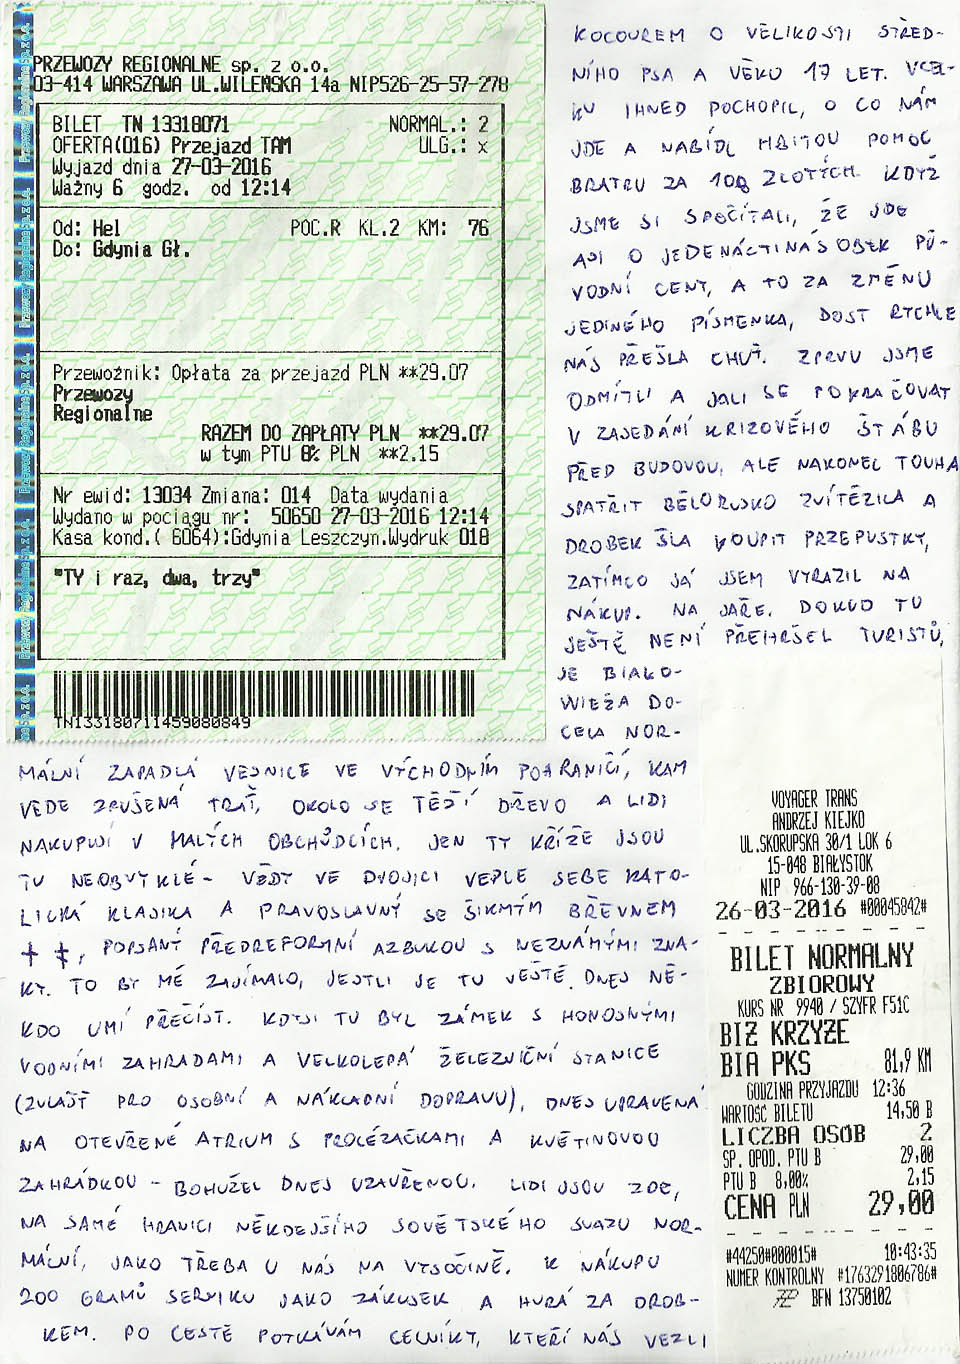 PRZEWOZY REGIONALNE sp. z o.o.
03-414 WARSZAWA UL.WILEŃSKA 14a NIP526-25-57-278
BILET TN 13318071 NORMAL.: 2
OFERTA(016) Przejazd TAM ULG.: x
Wyjazd dnia 27-03-2016
Ważny 6 godz. od 12:14
Od: Hel POC.R KL.2 KM: 76
Do: Gdynia Gł.
Przewoźnik: Opłata za przejazd PLN **29.07
Przewozy
Regionalne
RAZEM DO ZAPŁATY PLN **29.07
w tym PTU 8% PLN **2.15
Nr ewid: 13034 Zmiana: 014 Data wydania
Wydano w pociągu nr: 50650 27-03-2016 12:14
Kasa kond.( 6064):Gdynia Leszczyn.Wydruk 018
"TY i raz, dwa, trzy"
TN133180711459080849
KOCOUREM O VELIKOSTI STŘED-
NÍHO PSA A VĚKU 17 LET. VCEL-
KU IHNED POCHOPIL, O CO NÁM
JDE A NABÍDL HBITOU POMOC
BRATRU ZA 100 ZLOTÝCH. KDYŽ
JSME SI SPOČÍTALI, ŽE JDE
ASI O JEDENÁCTINÁSOBEK PŮ-
VODNÍ CENY, A TO ZA ZMĚNU
JEDINÉHO PÍSMENKA, DOST RYCHLE
NÁS PŘEŠLA CHUŤ. ZPRVU JSME
ODMÍTLI A JALI SE POKRAČOVAT
V ZASEDÁNÍ KRIZOVÉHO ŠTÁBU
PŘED BUDOVOU, ALE NAKONEC TOUHA
SPATŘIT BĚLORUSKO ZVÍTĚZILA A
DROBEK ŠLA KOUPIT PRZEPUSTKY,
ZATÍMCO JÁ JSEM VYRAZIL NA
NÁKUP. NA JAŘE, DOKUD TU
JEŠTĚ NENÍ PŘEHRŠEL TURISTŮ,
JE BIALO-
WIEŻA DO-
CELA NOR-
MÁLNÍ ZAPADLÁ VESNICE VE VÝCHODNÍM POHRANIČÍ, KAM
VEDE ZRUŠENÁ TRAŤ, OKOLO SE TĚŽÍ DŘEVO A LIDI
NAKUPUJÍ V MALÝCH OBCHŮDCÍCH. JEN TY KŘÍŽE JSOU
TU NEOBVYKLÉ - VŽDY VE DVOJICI VEDLE SEBE KATO-
LICKÁ KLASIKA A PRAVOSLAVNÝ SE ŠIKMÝM BŘEVNEM
✝ ☦, POPSANÝ PŘEDREFORMNÍ AZBUKOU S NEZNÁMÝMI ZNA-
KY. TO BY MÉ ZAJÍMALO, JESTLI JE TU JEŠTĚ DNES NĚ-
KDO UMÍ PŘEČÍST. KDYSI TU BYL ZÁMEK S HONOSNÝMI
VODNÍMI ZAHRADAMI A VELKOLEPÁ ŽELEZNIČNÍ STANICE
(ZVLÁŠŤ PRO OSOBNÍ A NÁKLADNÍ DOPRAVU), DNES UPRAVENÁ
NA OTEVŘENÉ ATRIUM S PROLÉZAČKAMI A KVĚTINOVOU
ZAHRÁDKOU - BOHUŽEL DNES UZAVŘENOU. LIDI JSOU ZDE,
NA SAMÉ HRANICI NĚKDEJŠÍHO SOVĚTSKÉHO SVAZU NOR-
MÁLNÍ, JAKO TŘEBA U NÁS NA VYSOČINĚ. K NÁKUPU
200 GRAMŮ SERNIKU JAKO ZÁKUSEK A HURÁ ZA DROB-
KEM. PO CESTĚ POTKÁVÁM CELNÍKY, KTEŘÍ NÁS VEZLI
VOYAGER TRANS
ANDRZEJ KIEJKO
UL.SKORUPSKA 30/1 LOK 6
15-048 BIAŁYSTOK
NIP 966-130-39-08
26-03-2016 #00045842#
BILET NORMALNY
ZBIOROWY
KURS NR 9940 / SZYFR F51C
BIŻ KRZYŻE
BIA PKS 81,9 KM
GODZINA PRZYJAZDU 12:36
WARTOŚĆ BILETU 14,50 B
LICZBA OSÓB 2
SP. OPOD. PTU B 29,00
PTU B 8,00% 2,15
CENA PLN 29,00
#44250#000015# 10:43:35
NUMER KONTROLNY #1763291806786#
BFN 13750102